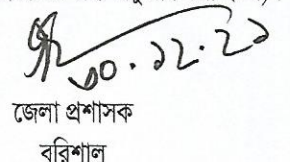 ৩০.১২.২১
জেলা প্রশাসক
বরিশাল